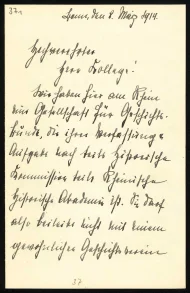 37.
Bonn, den 8. März 1914.
Hochverehrter
Herr Kollege!
Wir haben hier am Rhein
eine Gesellschaft für Geschichts-
kunde, die ihrer Verfassung u.
Aufgabe nach teils Historische
Kommission teils Rheinische
Historische Akademie ist. Sie darf
also beileibe nicht mit einem
gewöhnlichen Geschichtsverein
37